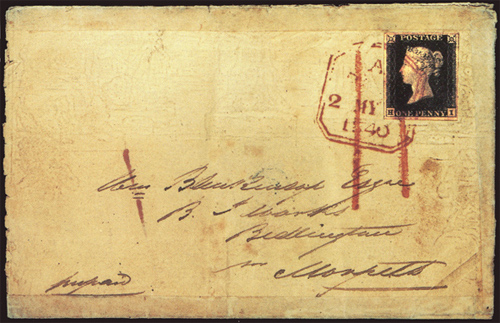 POSTAGE
A
2 MY
1840
H I
ONE PENNY
Wm Blenkinsop Esqre
B. I. Works
Bedlington
nr Morpeth
prepaid